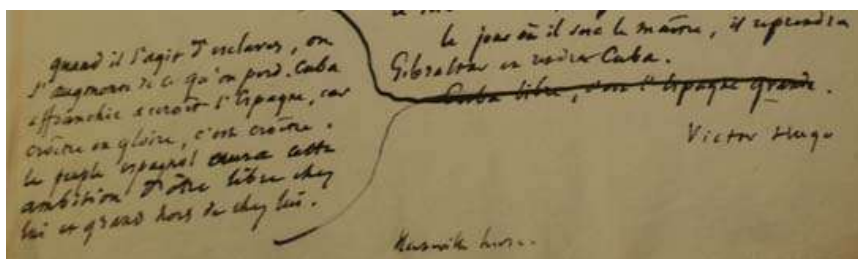 quand il s'agit d'esclaves, on
s'augmente de ce qu'on perd. Cuba
affranchie accroît l'Espagne, car
croître en gloire, c'est croître.
le peuple espagnol aura cette
ambition d'être libre chez
lui et grand hors de chez lui.
le jour où il sera le maître, il reprendra
Gibraltar et rendra Cuba.
Cuba libre, c'est l'Espagne grande.
Victor Hugo
Hauteville house.